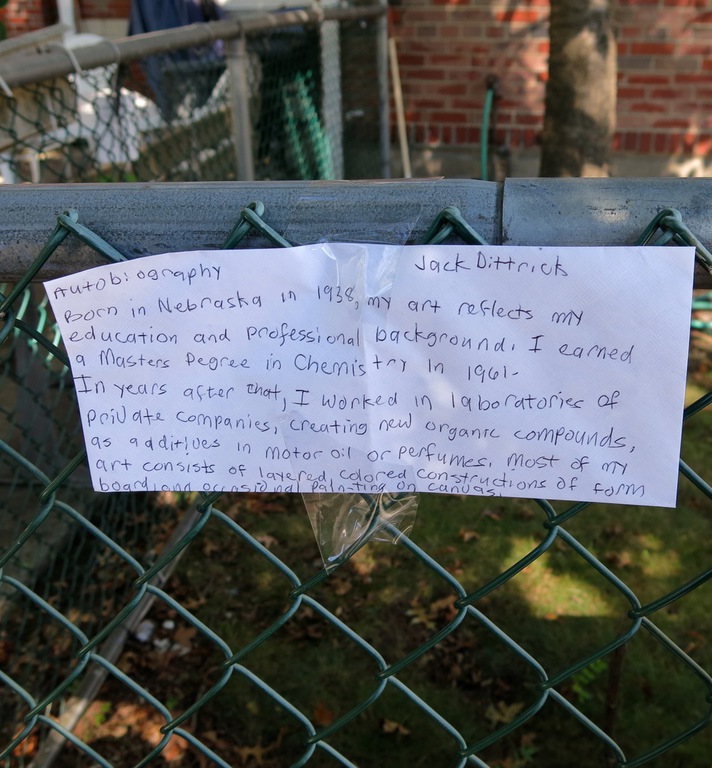 Autobiography Jack Dittrich
Born in Nebraska in 1938, my art reflects my
education and professional background. I earned
a Masters Degree in Chemistry in 1961.
In years after that, I worked in laboratories of
private companies, creating new organic compounds,
as additives in motor oil or perfumes. Most of my
art consists of layered colored constructions of form
board and occasional painting on canvas.